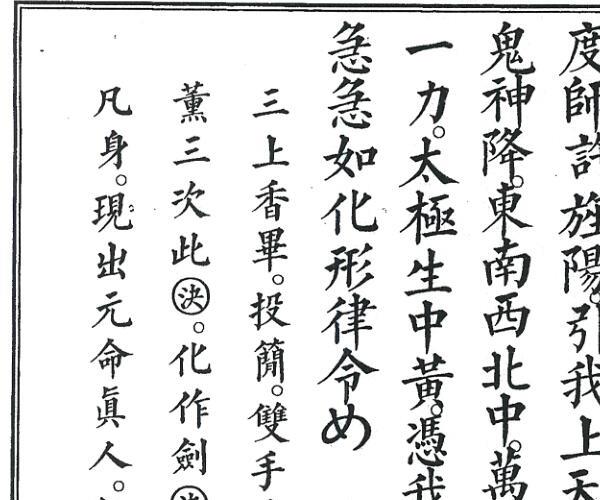 度師許旌陽。引我上天
鬼神降。東南西北中。萬
一力。太極生中黃。憑我
急急如化形律令め
三上香畢。投簡。雙手
薰三次此㊥決。化作劍
凡身。現出元命眞人。